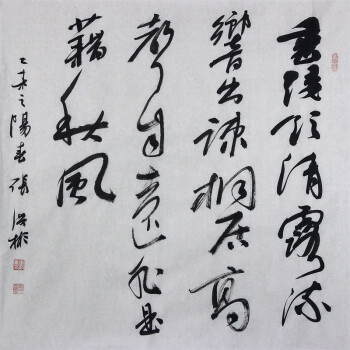 垂緌飲清露流
響出疎桐居高
聲自遠非是
藉秋風
乙未之陽春張